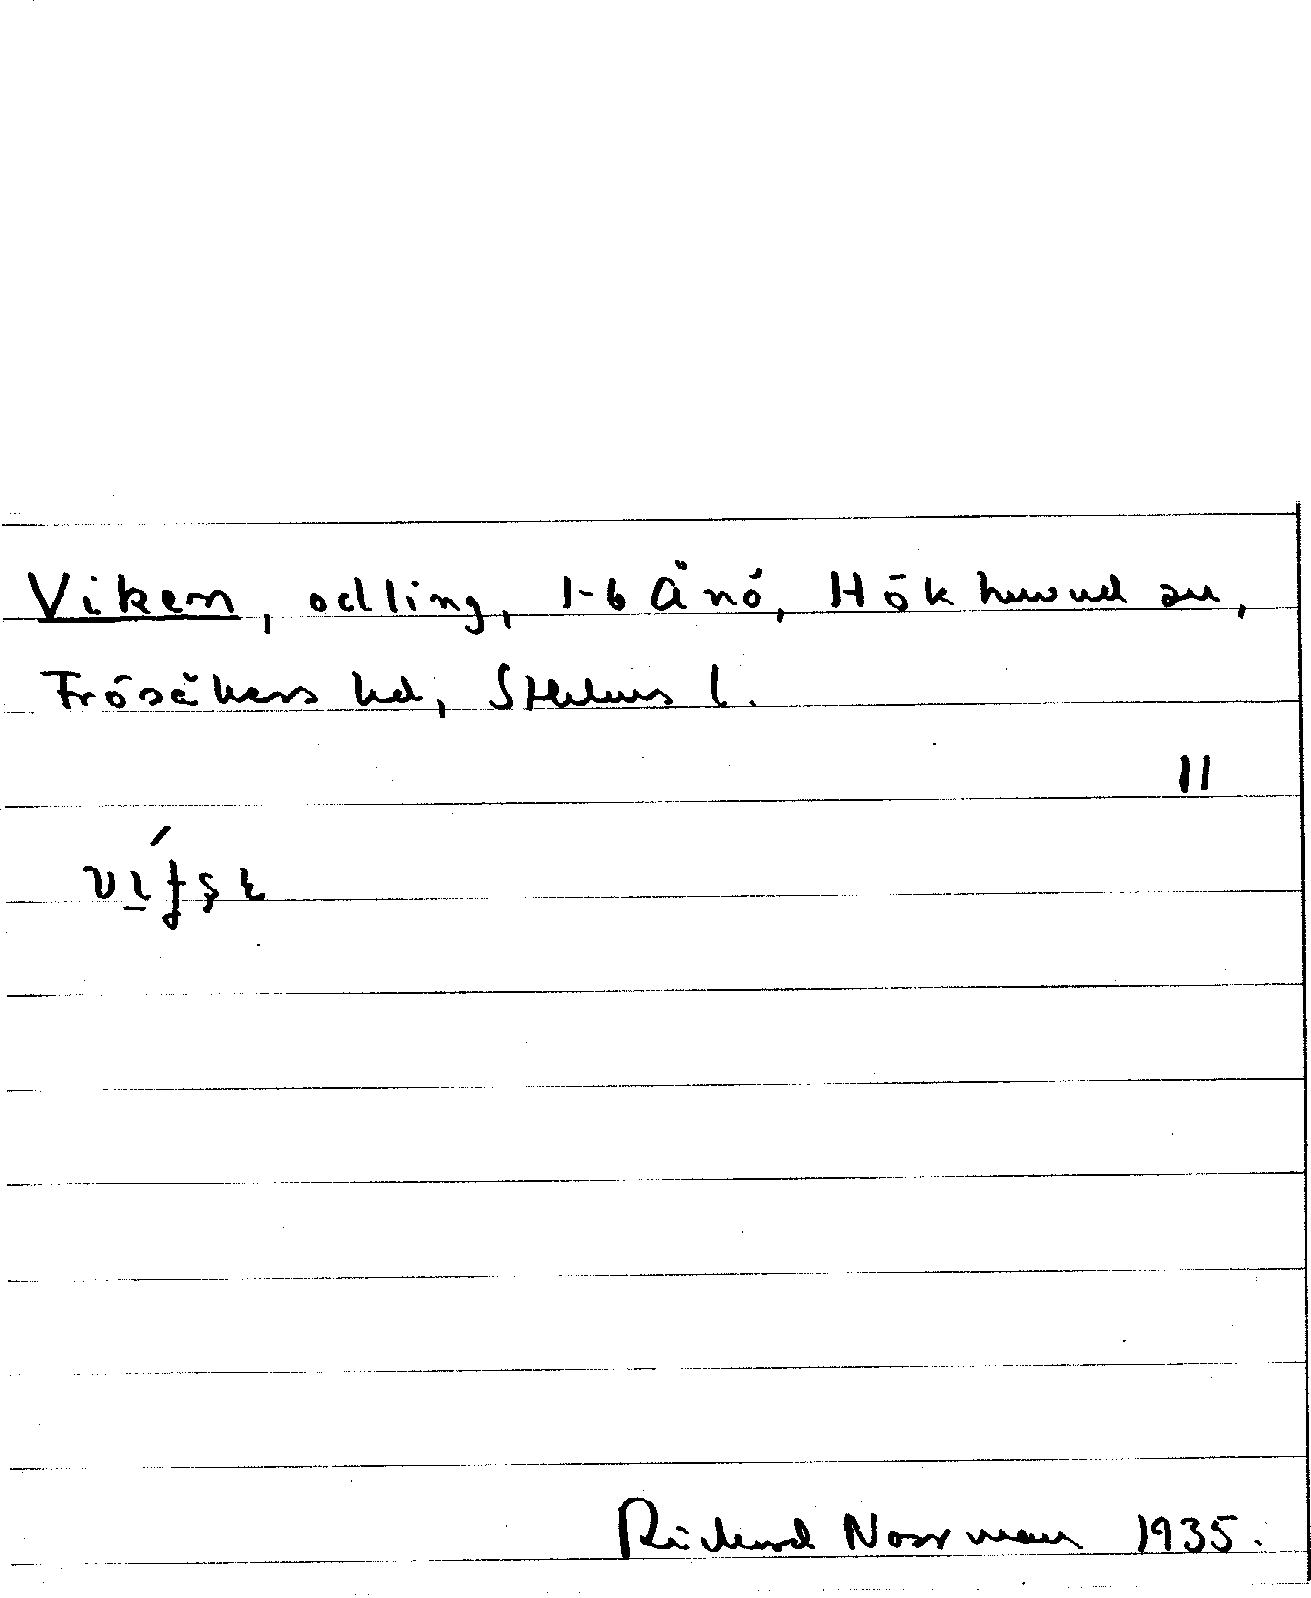 Viken, odling, 1-6 Änö, Hökhuvud sn,
Frösåkers hd, Sthlms l.
II
Richard Norrman 1935.